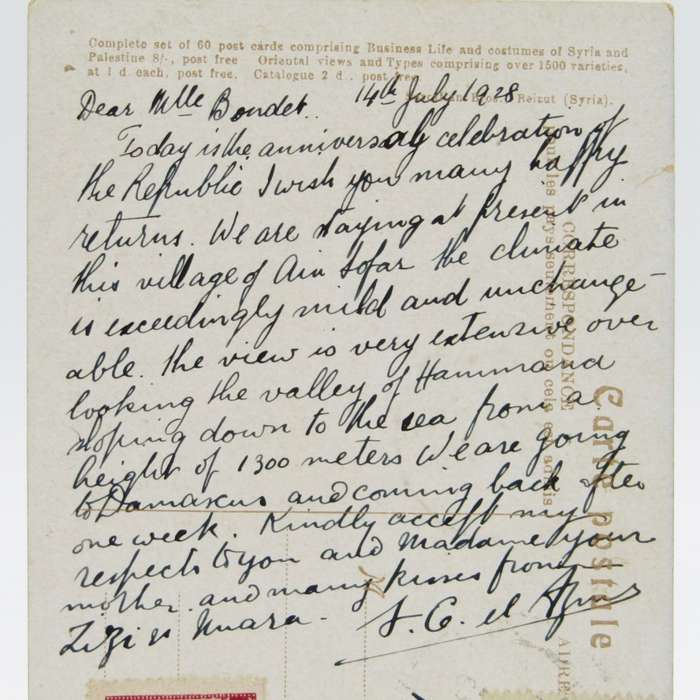 Complete set of 60 post cards comprising Business Life and costumes of Syria and
Palestine 8/-, post free Oriental views and Types comprising over 1500 varieties,
at 1 d. each, post free. Catalogue 2 d., post free
Bros. Beirut (Syria).
Dear Mlle Bondet. 14th July 1928
Today is the anniversary celebration of
the Republic I wish you many happy
returns. We are staying at present in
this village of Ain Sofar the climate
is exceedingly mild and unchange-
able. The view is very extensive over
looking the valley of Hammana
sloping down to the sea from a
height of 1300 meters We are going
to Damascus and coming back after
one week. Kindly accept my
respects to you and Madame your
mother and many kisses from
Zizi et Nuara. J. C. el
CORRESPONDANCE
Carte postale